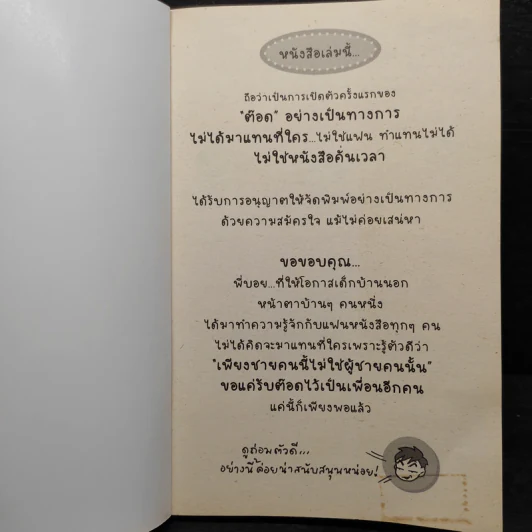 หนังสือเล่มนี้...
ถือว่าเป็นการเปิดตัวครั้งแรกของ
"ต๊อด" อย่างเป็นทางการ
ไม่ได้มาแทนที่ใคร...ไม่ใช่แฟน ทำแทนไม่ได้
ไม่ใช่หนังสือคั่นเวลา
ได้รับการอนุญาตให้จัดพิมพ์อย่างเป็นทางการ
ด้วยความสมัครใจ แม้ไม่ค่อยเสน่หา
ขอขอบคุณ...
พี่บอย...ที่ให้โอกาสเด็กบ้านนอก
หน้าตาบ้านๆ คนหนึ่ง
ได้มาทำความรู้จักกับแฟนหนังสือทุกๆ คน
ไม่ได้คิดจะมาแทนที่ใครเพราะรู้ตัวดีว่า
"เพียงชายคนนี้ไม่ใช่ผู้ชายคนนั้น"
ขอแค่รับต๊อดไว้เป็นเพื่อนอีกคน
แค่นี้ก็เพียงพอแล้ว
ดูถ่อมตัวดี...
อย่างนี้ค่อยน่าสนับสนุนหน่อย!